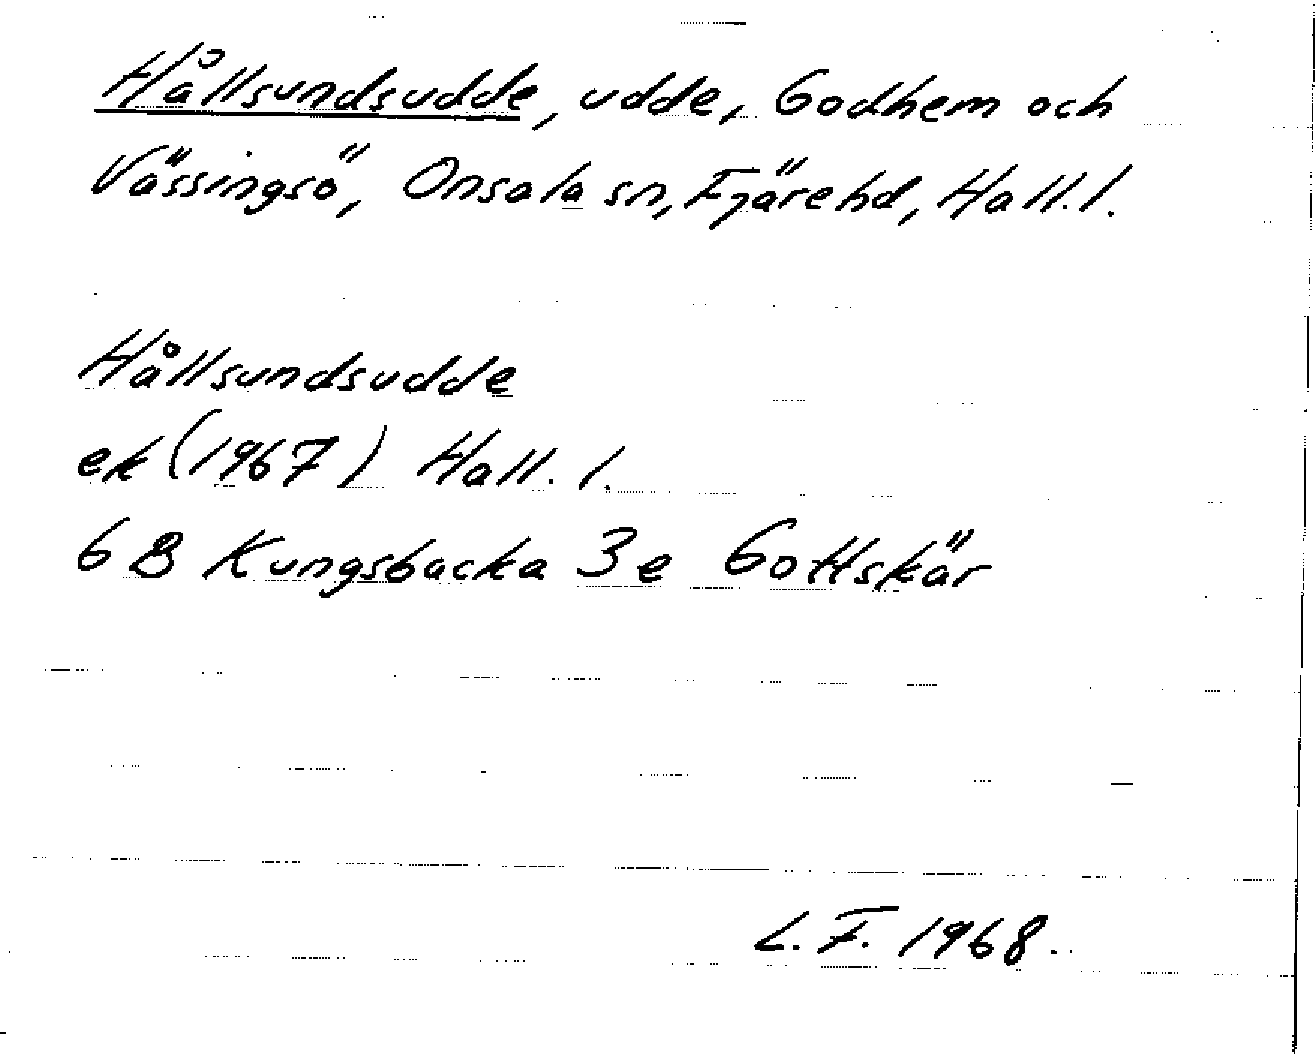 Hållsundsudde, udde, Godhem och
Vässingsö, Onsala sn, Fjäre hd, Hall. l.
Hållsundsudde
ek (1967) Hall. l.
6 B Kungsbacka 3e Gottskär
L. F. 1968.